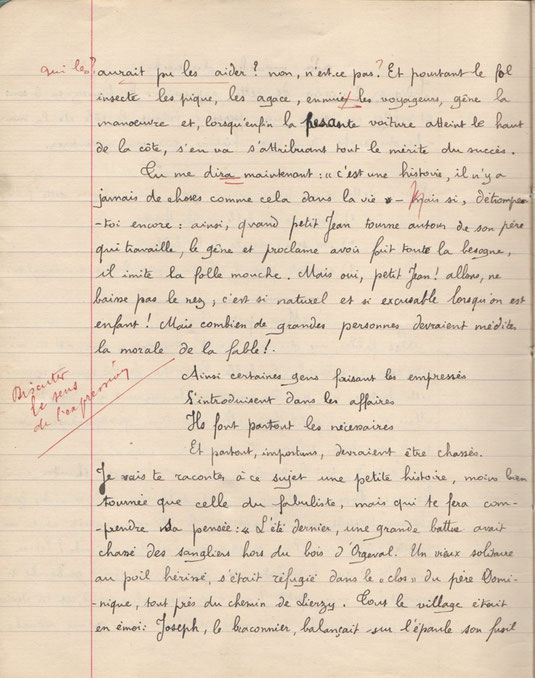 qui les? aurait pu les aider? non, n'est-ce pas? Et pourtant le fol
insecte les pique, les agace, ennuie les voyageurs, gêne la
manœuvre et, lorsqu'enfin la pesante voiture atteint le haut
de la côte, s'en va s'attribuant tout le mérite du succès.
Tu me dira maintenant: "c'est une histoire, il n'y a
jamais de choses comme cela dans la vie - Mais si, détrompe
-toi encore: ainsi, quand petit Jean tourne autour de son père
qui travaille, le gêne et proclame avoir fait toute la besogne,
il imite la folle mouche. Mais oui, petit Jean! allons, ne
baisse pas le nez, c'est si naturel et si excusable lorsqu'on est
enfant! Mais combien de grandes personnes devraient méditer
la morale de la fable!.
Discuter
le sens
de l'expression
Ainsi certaines gens faisant les empressés
S'introduisent dans les affaires
Ils font partout les nécessaires
Et partout, importuns, devraient être chassés.
Je vais te raconter à ce sujet une petite histoire, moins bien
tournée que celle du fabuliste, mais qui te fera com-
-prendre sa pensée: "L'été dernier, une grande battue avait
chassé des sangliers hors du bois d'Orgeval. Un vieux solitaire
au poil hérissé, s'était réfugié dans le "clos" du père Domi-
-nique, tout près du chemin de Lierzy. Tous le village était
en émoi: Joseph, le braconnier, balançait sur l'épaule son fusil